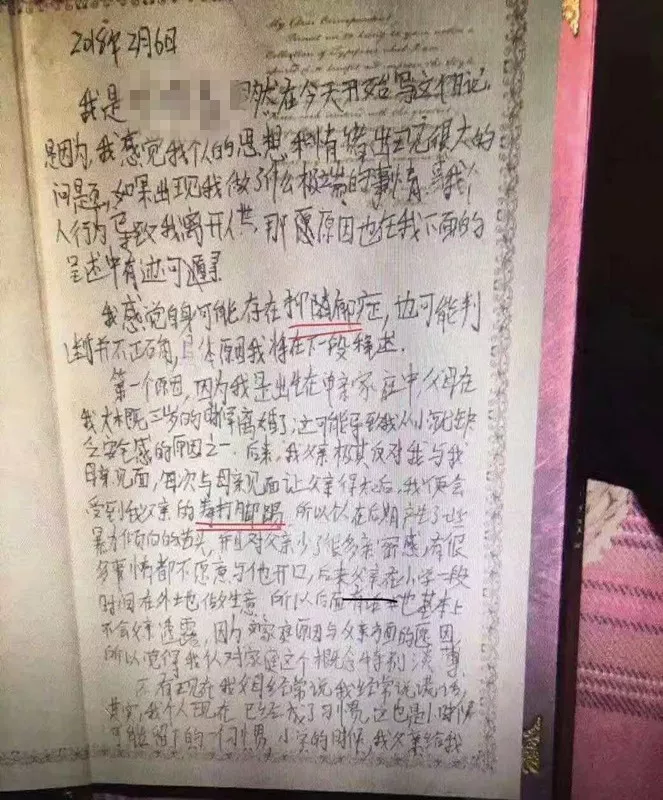 My Dear Correspondent
2018年2月6日
我是 然在今天开始写这个日记
是因为,我感觉我个人的思想和情绪出现很大的
问题,如果出现我做了什么极端的事情或我个
人行为导致我离开人世,那愿原因也在我下面的
呈述中有迹可循
我感觉自身可能存在抑郁症,也可能判
断并不正确,具体原因我将在下一段释述.
第一个原因,因为我是出生在单亲家庭中,父母在
我大概三岁的时候离婚了,这可能导致我从小就缺
乏安全感的原因之一.后来,我父亲极其反对我与我
母亲见面,每次与母亲见面让父亲得知后,我便会
受到我父亲的毒打脚踢,所以我在后期产生了些
暴力倾向的苗头,并且对父亲少了很多亲密感,有很
多事情都不愿意与他开口,后来父亲在小学一段
时间在外地做生意.所以后面 也基本上
不会父亲透露,因为 家庭原因与父亲方面的原因,
所以觉得我认对家庭这个概念特别淡薄.
还有现在我父母经常说我经常说谎话,
其实我个人现在已经成了习惯,这也是小时候
可能留下的一个习惯,小学的时候,我父亲给我